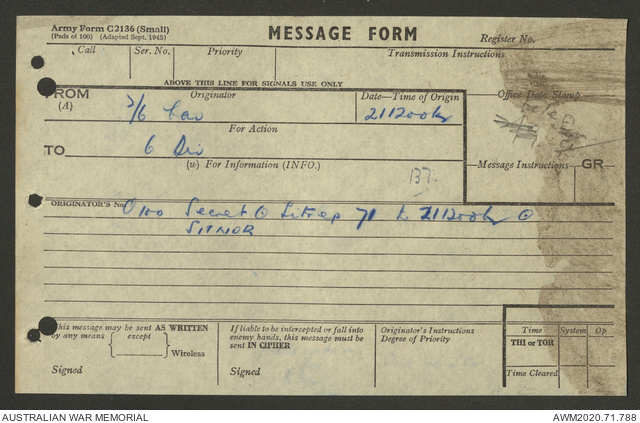 Army Form C2136 (Small)
(Pads of 100) (Adapted Sept. 1943)
MESSAGE FORM
Register No.
Call Ser. No. Priority Transmission Instructions
ABOVE THIS LINE FOR SIGNALS USE ONLY
FROM Originator Date—Time of Origin Office Date Stamp
(A) 2/6 Cav 211200k
For Action
TO 6 Div
(w) For Information (INFO.) Message Instructions GR
137
ORIGINATOR'S No. O100 Secret Sitrep 71 to 211200k
SITNOR
This message may be sent AS WRITTEN
by any means except
Wireless
Signed
If liable to be intercepted or fall into
enemy hands, this message must be
sent IN CIPHER
Signed
Originator's Instructions
Degree of Priority
Time System Op
THI or TOR
Time Cleared
AUSTRALIAN WAR MEMORIAL AWM2020.71.788